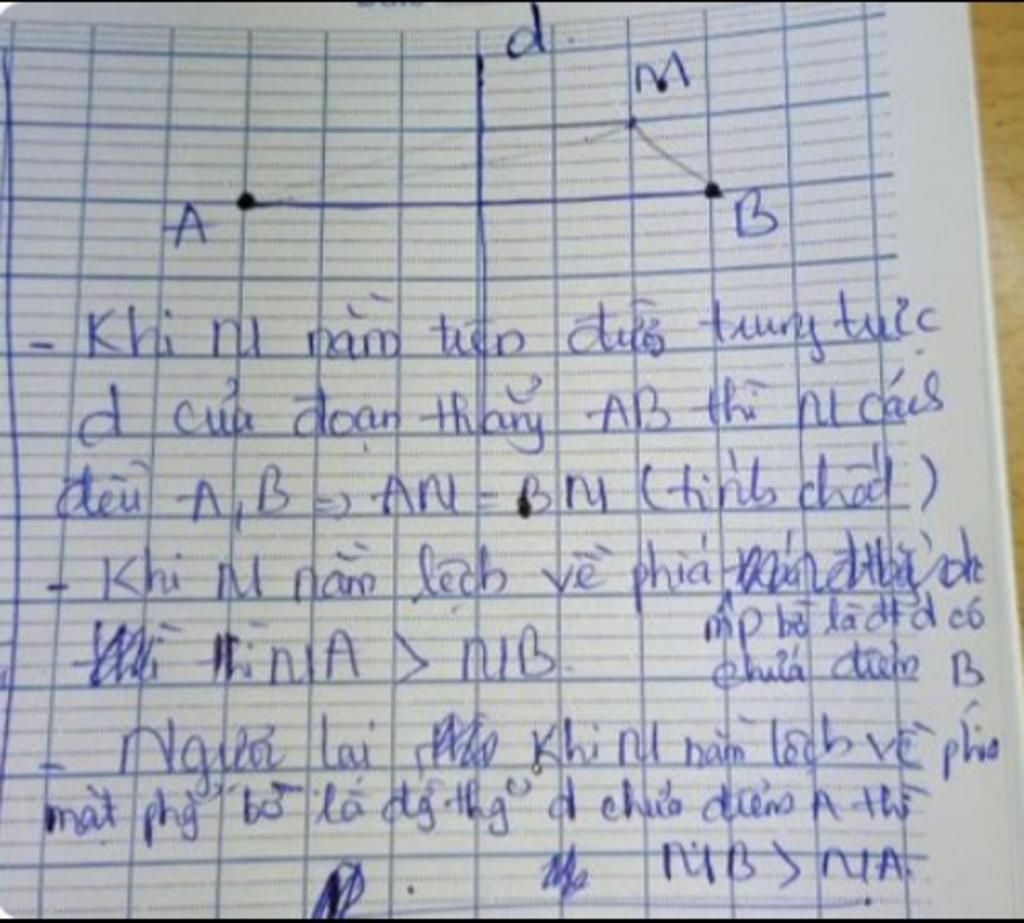 d.
M
A
B
- Khi M nằm trên đườg trung trực
d của đoạn thẳng AB thì M cách
đều A, B => AM = BM (tính chất)
- Khi M nằm lệch về phía
mp bờ là đtd có
thì MA > MB.
chứa điểm B
- Ngược lại Khi M nằm lệch về phía
mặt phg bờ là đg thg d chứa điểm A thì
MB > MA.